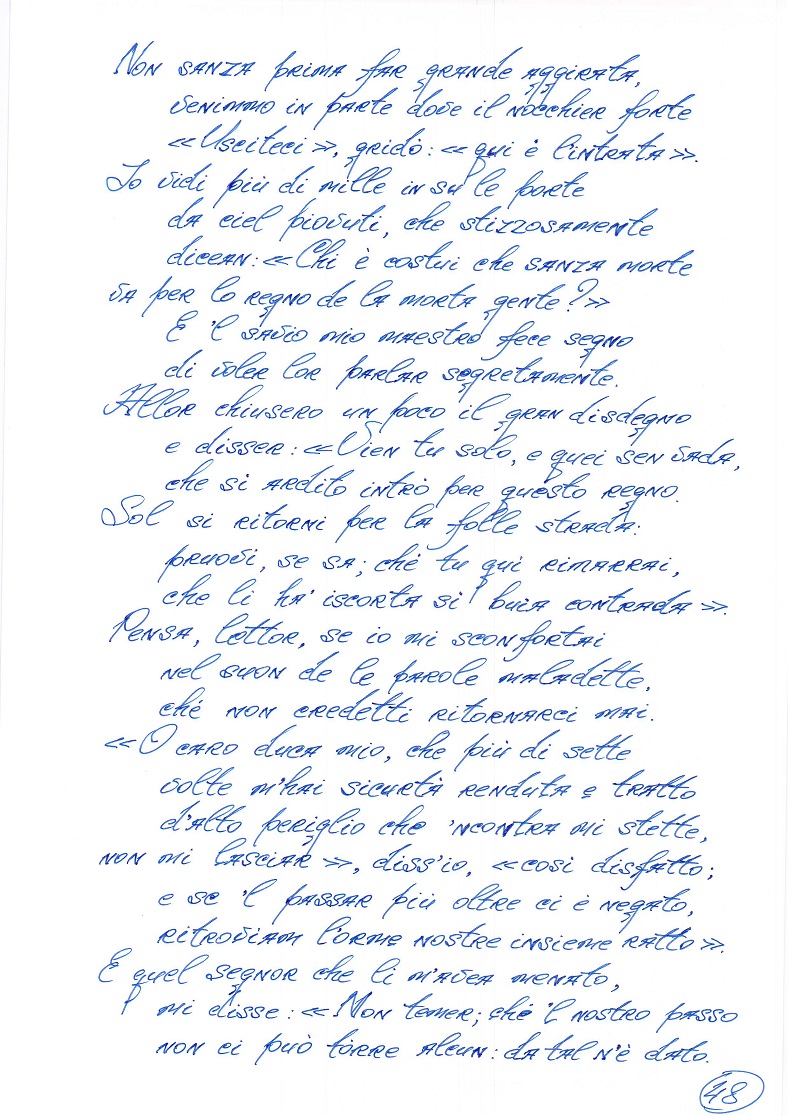 Non sanza prima far grande aggirata,
venimmo in parte dove il nocchier forte
«Usciteci», gridò: «qui è l'intrata».
Io vidi più di mille in su le porte
da ciel piovuti, che stizzosamente
dicean: «Chi è costui che sanza morte
va per lo regno de la morta gente?»
E 'l savio mio maestro fece segno
di voler lor parlar segretamente.
Allor chiusero un poco il gran disdegno
e disser: «Vien tu solo, e quei sen vada,
che sì ardito intrò per questo regno.
Sol si ritorni per la folle strada:
pruovi, se sa; ché tu qui rimarrai,
che li ha' iscorta sì buia contrada».
Pensa, lettor, se io mi sconfortai
nel suon de le parole maladette,
ché non credetti ritornarci mai.
«O caro duca mio, che più di sette
volte m'hai sicurtà renduta e tratto
d'alto periglio che 'ncontra mi stette,
non mi lasciar», diss'io, «così disfatto;
e se 'l passar più oltre ci è negato,
ritroviam l'orme nostre insieme ratto».
E quel segnor che lì m'avea menato,
mi disse: «Non temer; ché 'l nostro passo
non ci può tòrre alcun: da tal n'è dato.
48